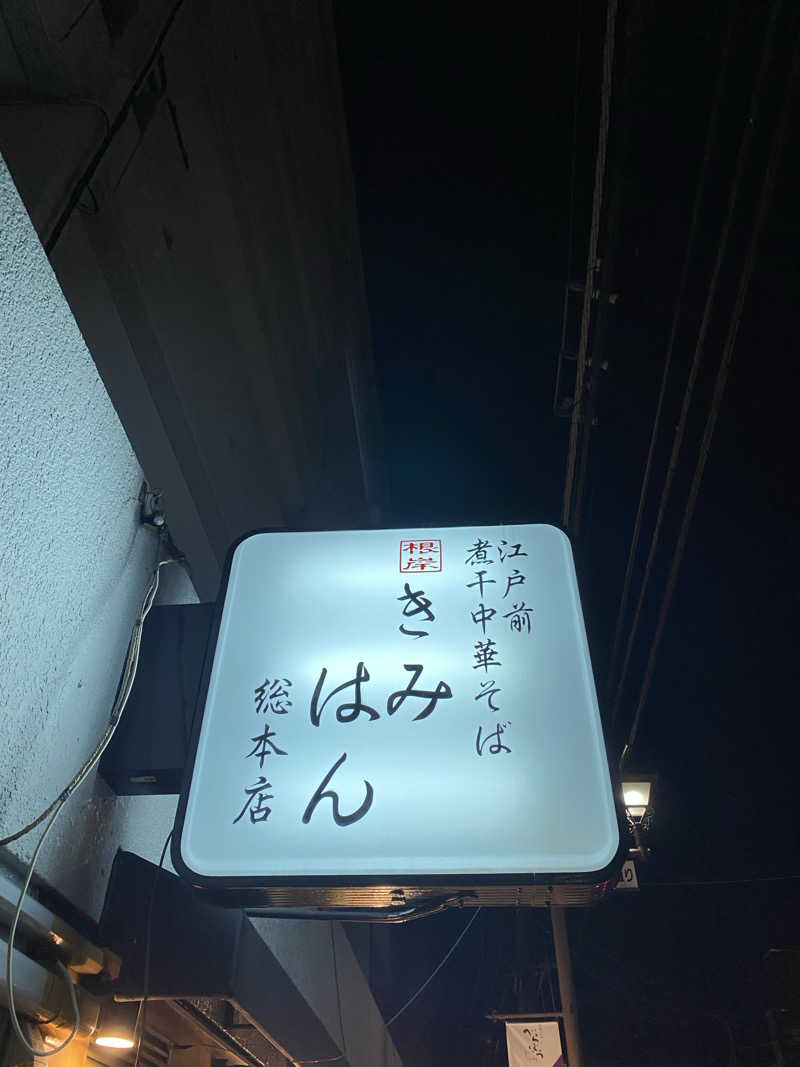 江戸前
煮干中華そば
根岸
きみ
はん
総本店
り